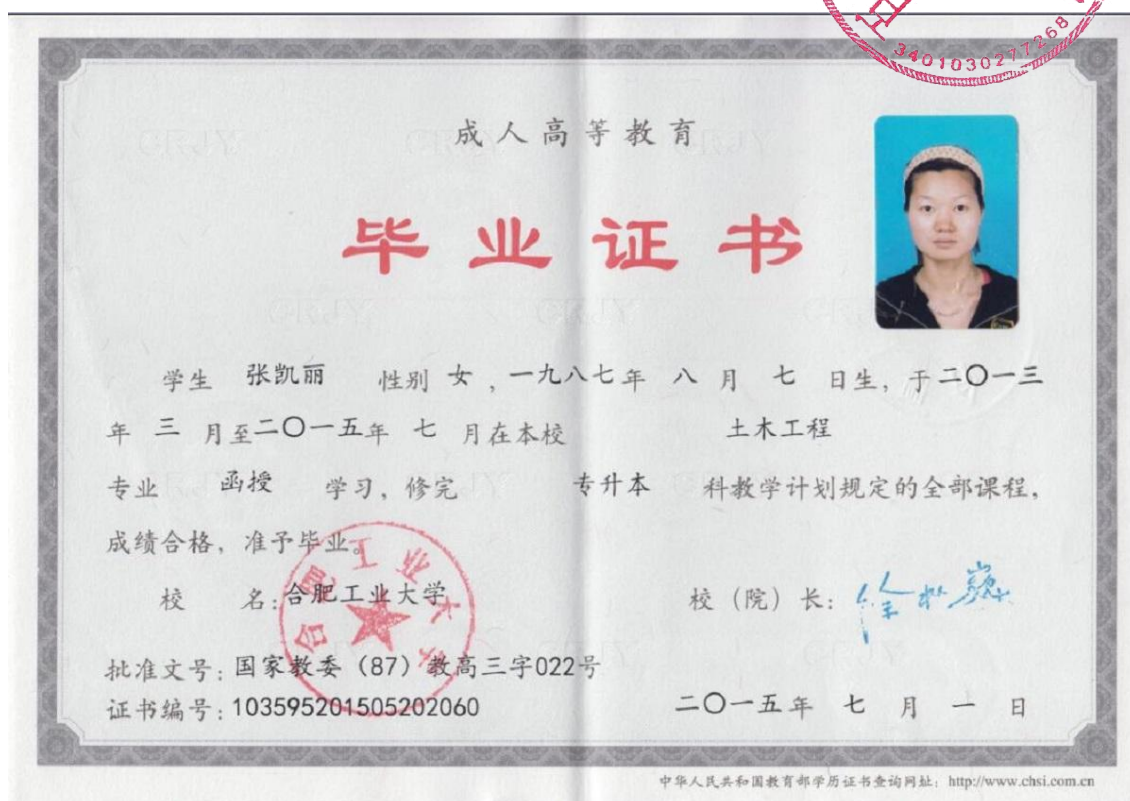 3401030277268
成人高等教育
毕业证书
学生 张凯丽 性别 女 ,一九八七年 八 月 七 日生, 于二〇一三
年 三 月至二〇一五年 七 月在本校 土木工程
专业 函授 学习, 修完 专升本 科教学计划规定的全部课程,
成绩合格, 准予毕业。
校 名:合肥工业大学 校(院)长:
合肥工业大学
批准文号:国家教委(87)教高三字022号
证书编号:103595201505202060 二〇一五年 七 月 一 日
中华人民共和国教育部学历证书查询网址: http://www.chsi.com.cn